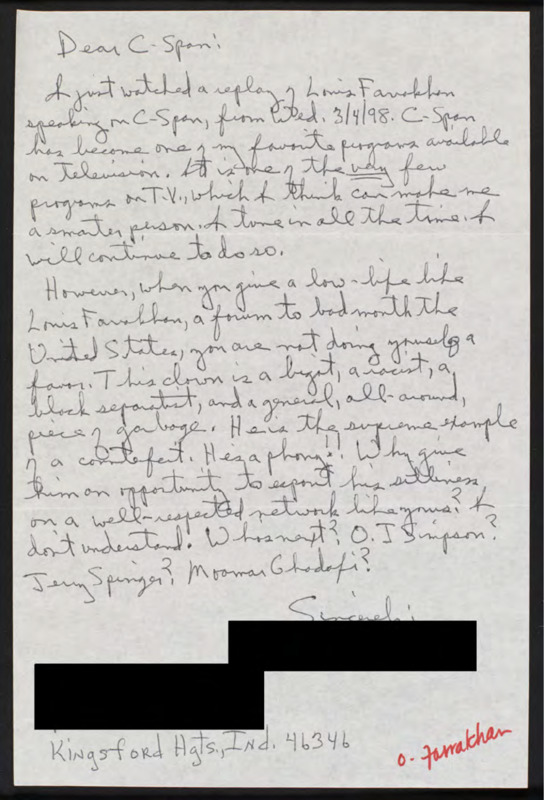 Dear C-Span:
I just watched a replay of Louis Farrakhan
speaking on C-Span, from Wed. 3/4/98. C-Span
has become one of my favorite programs available
on television. It is one of the very few
programs on T.V., which I think can make me
a smarter person. I tune in all the time. I
will continue to do so.
However, when you give a low-life like
Louis Farrakhan, a forum to badmouth the
United States, you are not doing yourself a
favor. This clown is a bigot, a racist, a
black separatist, and a general, all-around,
piece of garbage. He is the supreme example
of a counterfeit. Hes a phony!! Why give
him an opportunity to spout his silliness
on a well-respected network like yours? I
don't understand. Whos next? O.J Simpson?
Jerry Springer? Moamar Ghadafi?
Sincerely,
Kingsford Hgts, Ind. 46346
O. Farrakhan